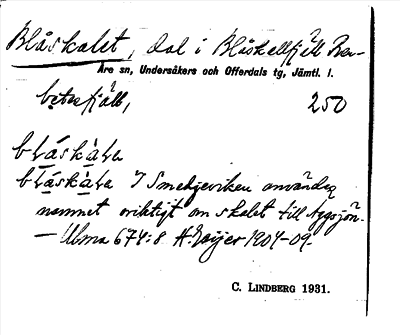 Blåskalet, dal i Blåskallfjäll Ren-
Åre sn, Undersåkers och Offerdals tg, Jämtl. l.
betesfjäll, 250
blåskàla
blåskàla I Smedjeviken användes
namnet oriktigt om skalet till Äggsjön.
— Ulma 674:8 H. Geijer 1904-09.
C. LINDBERG 1931.